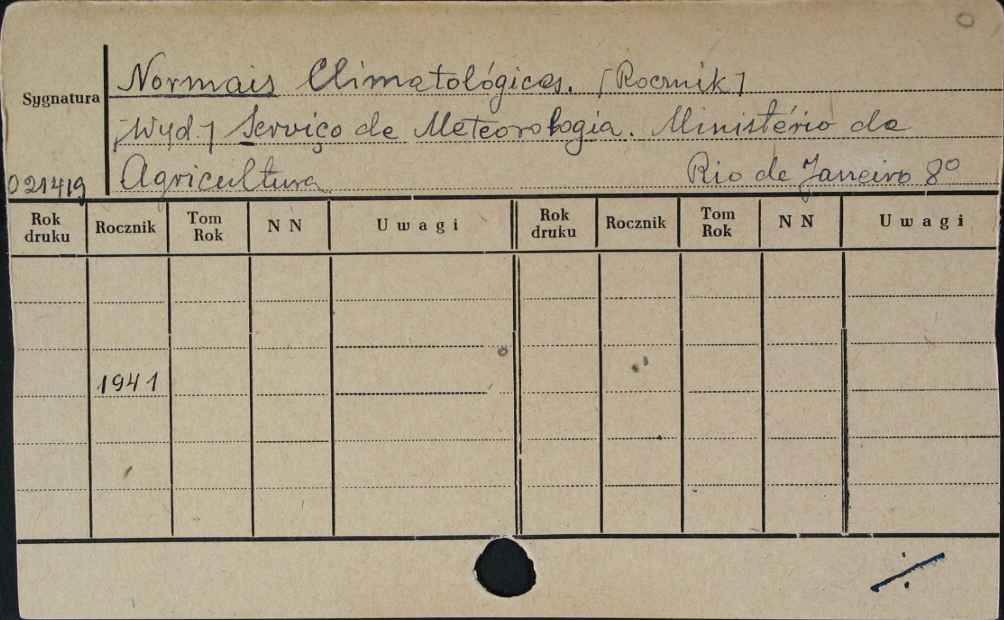 Normais Climatológicas. [Rocznik]
Sygnatura
[Wyd.] Serviço de Meteorologia. Ministério da
021419 Agricultura Rio de Janeiro 8º
Rok druku Rocznik Tom Rok N N Uwagi Rok druku Rocznik Tom Rok N N Uwagi
1941